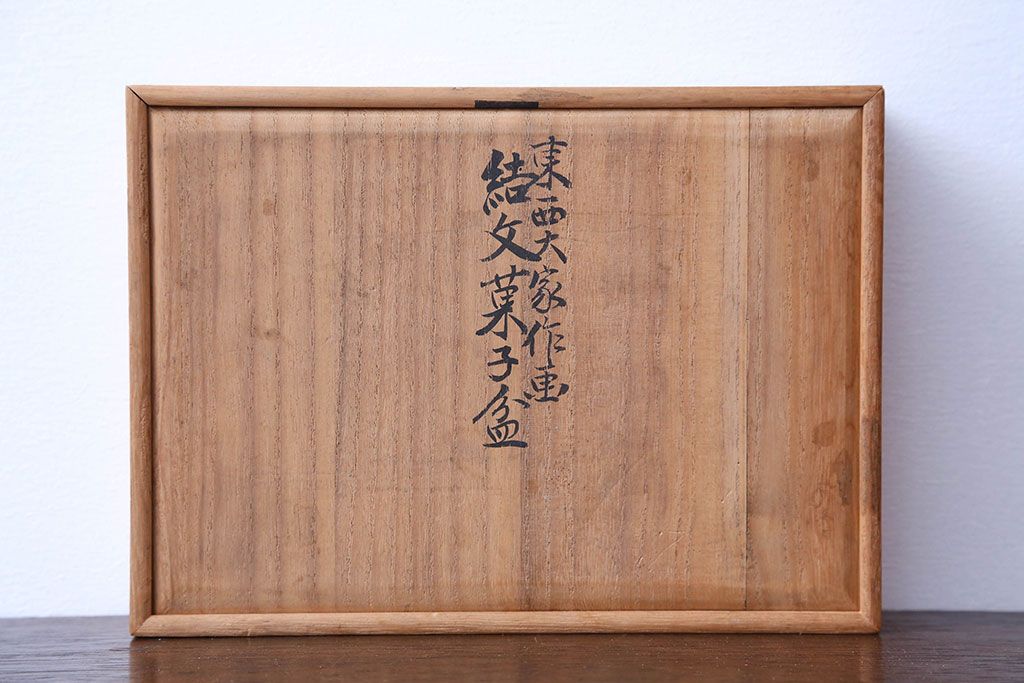 東西大家作画
結文菓子盆